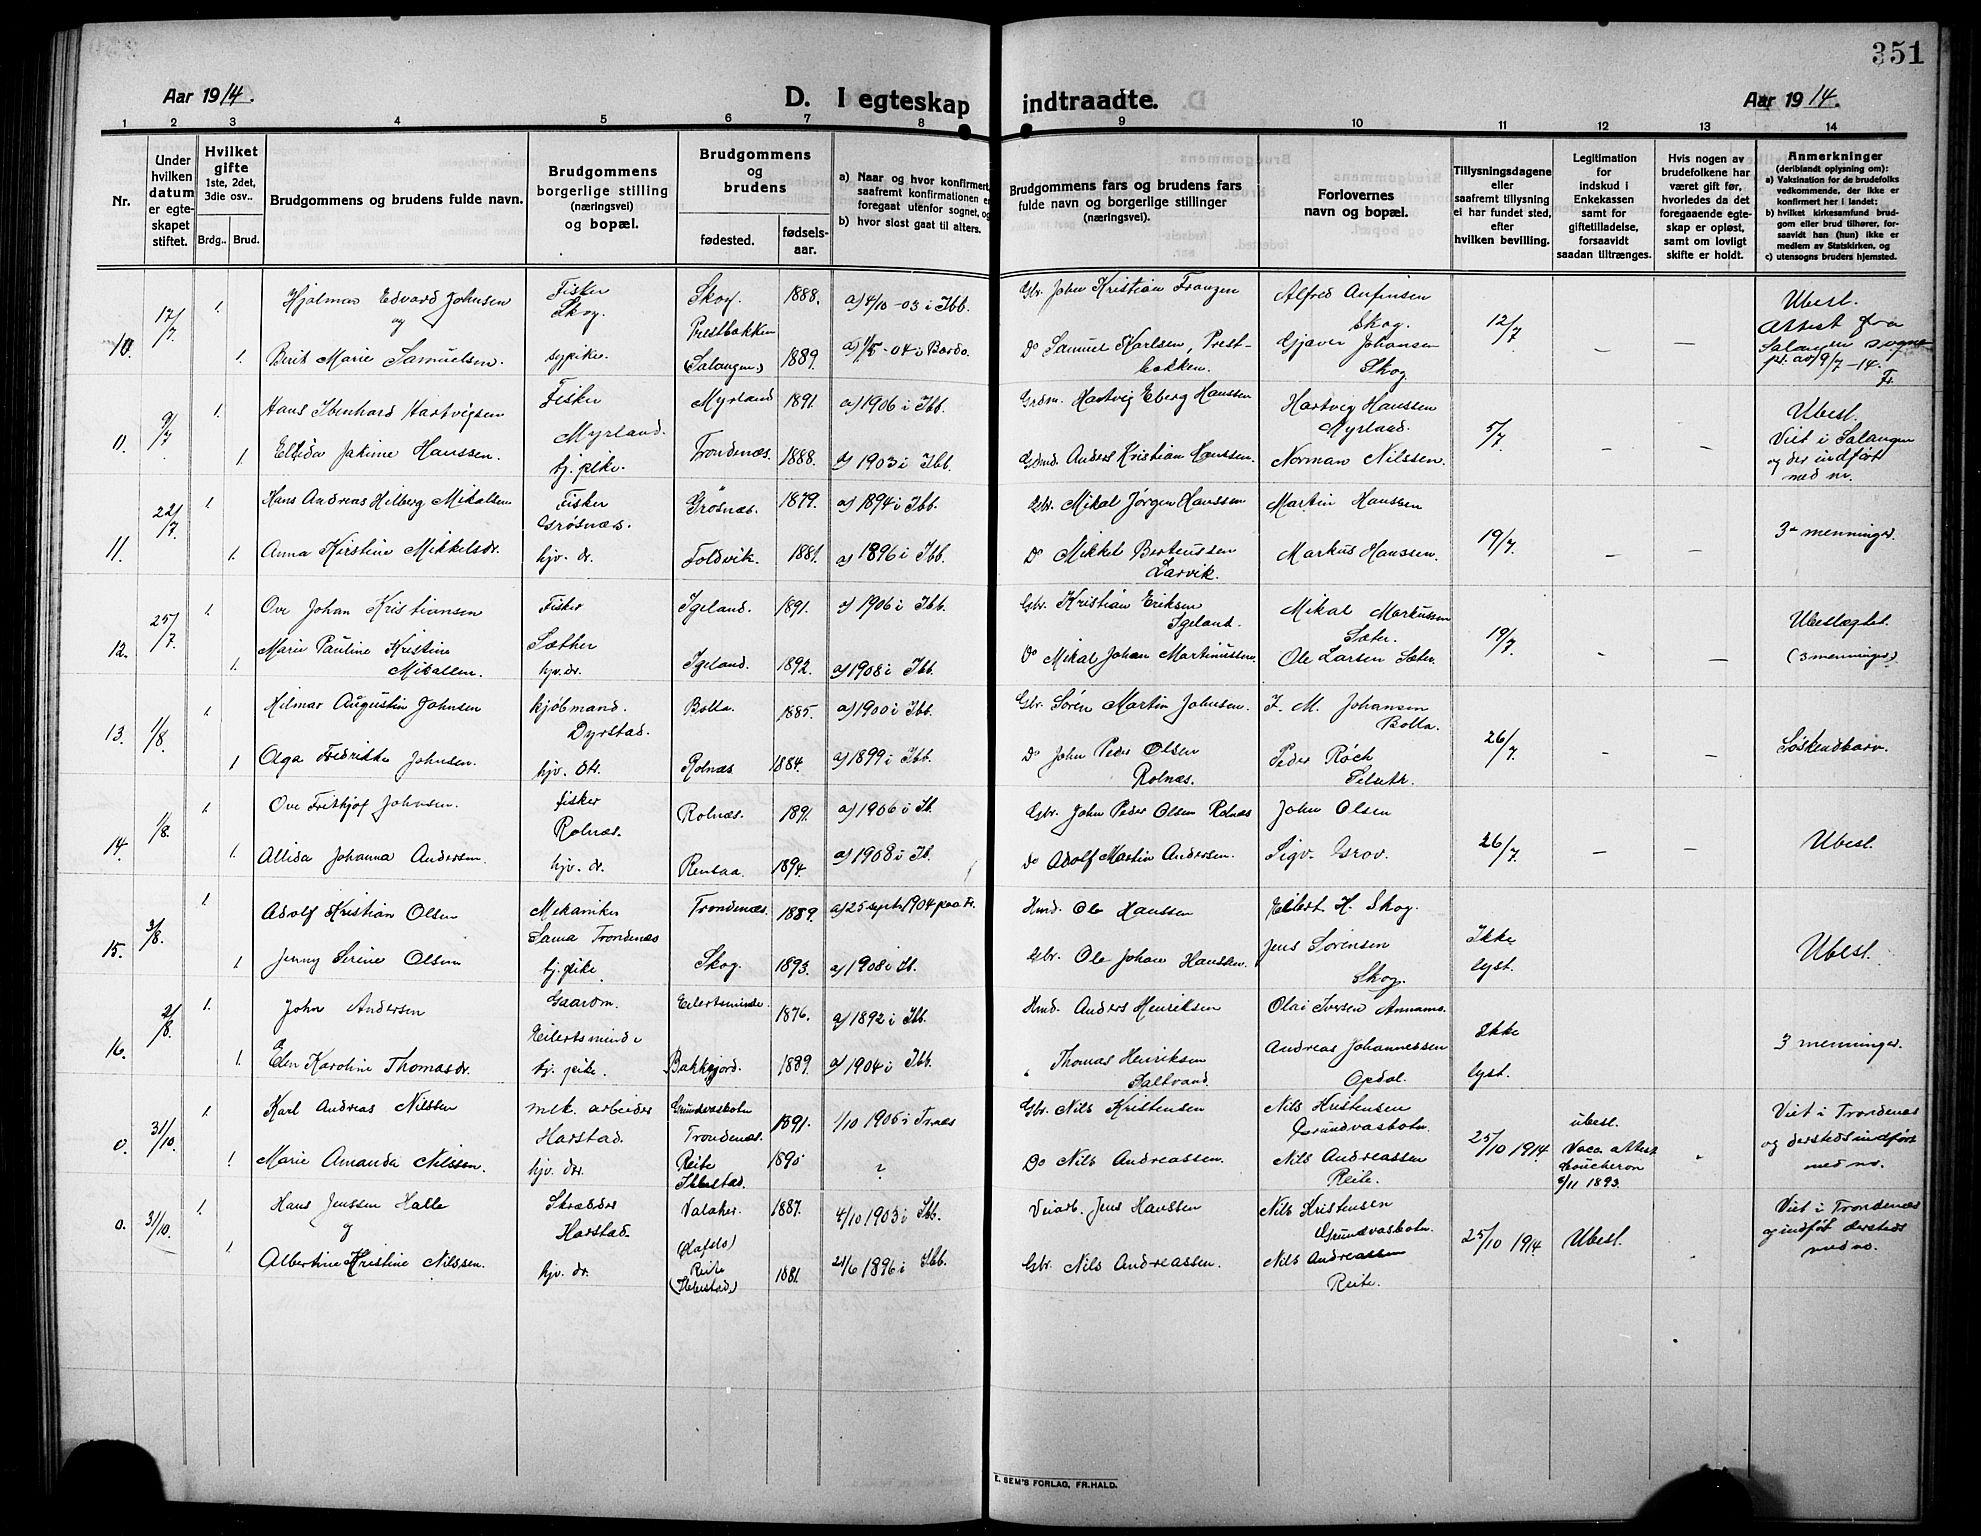 351
Aar 1914.
D. I egteskap indtraadte.
Aar 1914.
1 2 3 4 5 6 7 8 9 10 11 12 13 14
Nr.
Under
hvilken
datum
er egte-
skapet
stiftet.
Hvilket
gifte
1ste, 2det,
3die osv..
Brdg.. Brud.
Brudgommens og brudens fulde navn.
Brudgommens
borgerlige stilling
(næringsvei)
og bopæl.
Brudgommens
og
brudens
fødested.
fødsels-
aar.
a) Naar og hvor konfirmert,
saafremt konfirmationen er
foregaat utenfor sognet, og
b) hvor sidst gaat til alters.
Brudgommens fars og brudens fars
fulde navn og borgerlige stillinger
(næringsvei).
Forlovernes
navn og bopæl.
Tillysningsdagene
eller
saafremt tillysning
ei har fundet sted,
efter
hvilken bevilling.
Legitimation
for
indskud i
Enkekassen
samt for
giftetilladelse,
forsaavidt
saadan tiltrænges.
Hvis nogen av
brudefolkene har
været gift før,
hvorledes da det
foregaaende egte-
skap er opløst,
samt om lovligt
skifte er holdt.
Anmerkninger
(deriblandt oplysning om):
a) Vaksination for de brudefolks
vedkommende, der ikke er
konfirmert her i landet;
b) hvilket kirkesamfund brud-
gom eller brud tilhører, for-
saavidt han (hun) ikke er
medlem av Statskirken, og
c) utensogns bruders hjemsted.
10. 17/7 1. Hjalmar Edvard Johnsen Fisker Skog. Skog. 1888. a) 4/10-03 i Ibb. Gbr. John Kristian Franzen Alfred Anfinsen Skog. 12/7 Ubesl.
og
1. Berit Marie Samuelsen. sypike. Prestbakken (Salangen) 1889. a) 1/5-04 i Bardo. Do Samuel Karlsen, Prest-bakken. Gjæver Johansen Skog. – – Attest fra Salangen sogne pr. av 9/7-14. Fr.
11. 9/7 1. Hans Ibenhard Hartvigsen Fisker Myrland. Myrland 1891. a) 1906 i Ibb. Grdm. Hartvig Eberg Hanssen Hartvig Hanssen Myrland. 5/7 Ubesl.
1. Ellida Jakime Hanssen. tj. pike. Trondenæs. 1888. a) 1903 i Ibb. Grdmd. Anders Kristian Hanssen. Norman Nilssen. – – Viet i Salangen og der indført med nr.
11. 22/7 1. Hans Andreas Hilberg Mikalsen Fisker Grøsnæs. Grøsnæs. 1879. a) 1894 i Ibb. Gbr. Mikal Jørgen Hanssen Martin Hanssen 19/7. 3-menninger.
1. Anna Kirstine Mikkelsdr. hjv. dr. Foldvik. 1881. a) 1896 i Ibb. Do Mikkel Berteussen Larvik. Markus Hanssen. – –
12. 25/7. 1. Ove Johan Kristiansen Fisker Sæther Igeland. 1891. a) 1906 i Ibb. Gbr. Kristian Eriksen Igeland. Mikal Markussen Sæter. 19/7. Ubeslægtet.
1. Marie Pauline Kristine Mikalsen. hjv. dr. Igeland. 1892. a) 1908 i Ibb. Do Mikal Johan Martinussen. Ole Larsen Sæter. – – (3 menninger)
13. 1/8 1. Hilmar Augustin Johnsen kjøbmand. Dyrstad. Bolla. 1885. a) 1900 i Ibb. Gbr. Søren Martin Johnsen. J. M. Johansen Bolla. 26/7 Søskendbarn.
1. Olga Fredrikke Johnsen. hjv. dtt. Rolnæs 1884. a) 1899 i Ibb. Do John Peder Olsen Rolnæs. Peder Røch – –
14. 1/8. 1. Ove Frithjof Johnsen. fisker Rolnæs. Rolnæs. 1891. a) 1906 i Ib. Gbr. John Peder Olsen Rolnæs John Olsen 26/7. Ubesl.
1. Allida Johanna Andersen. hjv. dr. Rensaa. 1894. a) 1908 i Ib. Do Adolf Martin Andersen. Sigv. Grov. – –
15. 3/8. 1. Adolf Kristian Olsen Mekaniker Sama Trondenæs Trondenæs. 1889. a) 25 septr 1904 paa Tr. Hmd. Ole Hanssen Eilert H. Skog. Ikke lyst. Ubesl.
1. Jenny Serine Olsen tj. pike. Skog. 1893. a) 1908 i Ib. Gbr. Ole Johan Hanssen. Jens Sørensen Skog.
16. 2/8. 1. John Andersen Gaardm. Eilertsminde Eilertsminde 1876. a) 1892 i Ibb. Hmd. Anders Henriksen Olai Iversen Annamo. Ikke lyst. 3 menninger.
1. Elen Karoline Thomasdr. tj. pike. Bakkejord. 1889. a) 1904 i Ibb. " Thomas Henriksen Saltvand. Andreas Johannessen Opdal.
0. 31/10. 1. Karl Andreas Nilssen mek. arbeider Harstad. Grundvasbotn Trondenæs. 1891. 1/10 1906 i Trnæs Gbr. Nils Kristensen Nils Kristensen Grundvasbotn. 25/10 1914 ubesl. Viet i Trondenæs
1. Marie Amanda Nilssen. hjv. dr. Reite Ibbestad. 1890 ? Do Nils Andreassen. Nils Andreassen Reite. Vacc. attest Coucheron 8/11 1893. og dersteds indført med no.
0. 31/10. 1. Hans Jenssen Halle Skrædder Harstad. Valaker. 1887. 4/10 1903 i Ibb. Veiarb. Jens Hanssen Nils Kristensen Grundvasbotn. 25/10 1914 Ubesl. Viet i Trondenæs
og
1. Albertine Kristine Nilssen. hjv. dr. Reite (Ibbestad) 1881. 21/6 1896 i Ibb. Gbr. Nils Andreassen. Nils Andreassen Reite. og indført dersteds med no.
E. SEM'S FORLAG, FR.HALD.